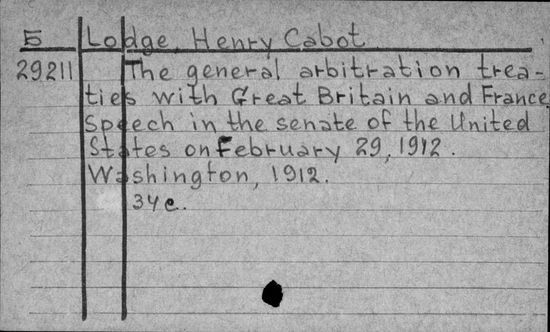 Б Lodge, Henry Cabot
29211 The general arbitration trea-
ties with Great Britain and France,
Speech in the senate of the United
States on February 29, 1912.
Washington, 1912.
34 с.